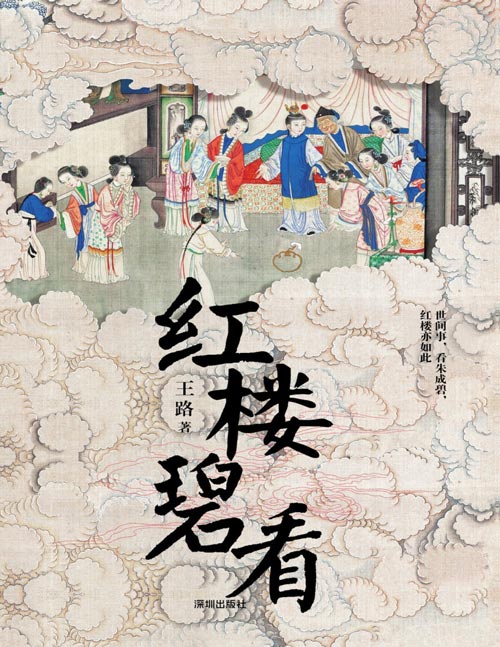 世间事，看朱成碧，
红楼亦如此
红楼碧看
王路 著
深圳出版社